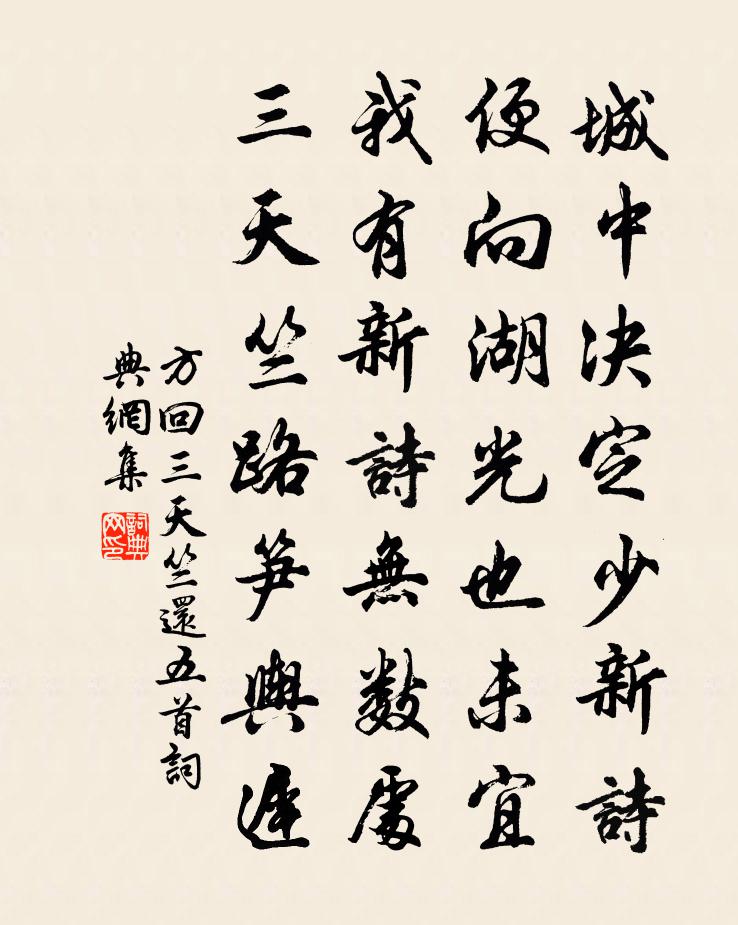 城中決定少新詩
便向湖光也未宜
我有新詩無數處
三天竺路笋輿遲
方回三天竺還五首詞
典網集
詞典網印